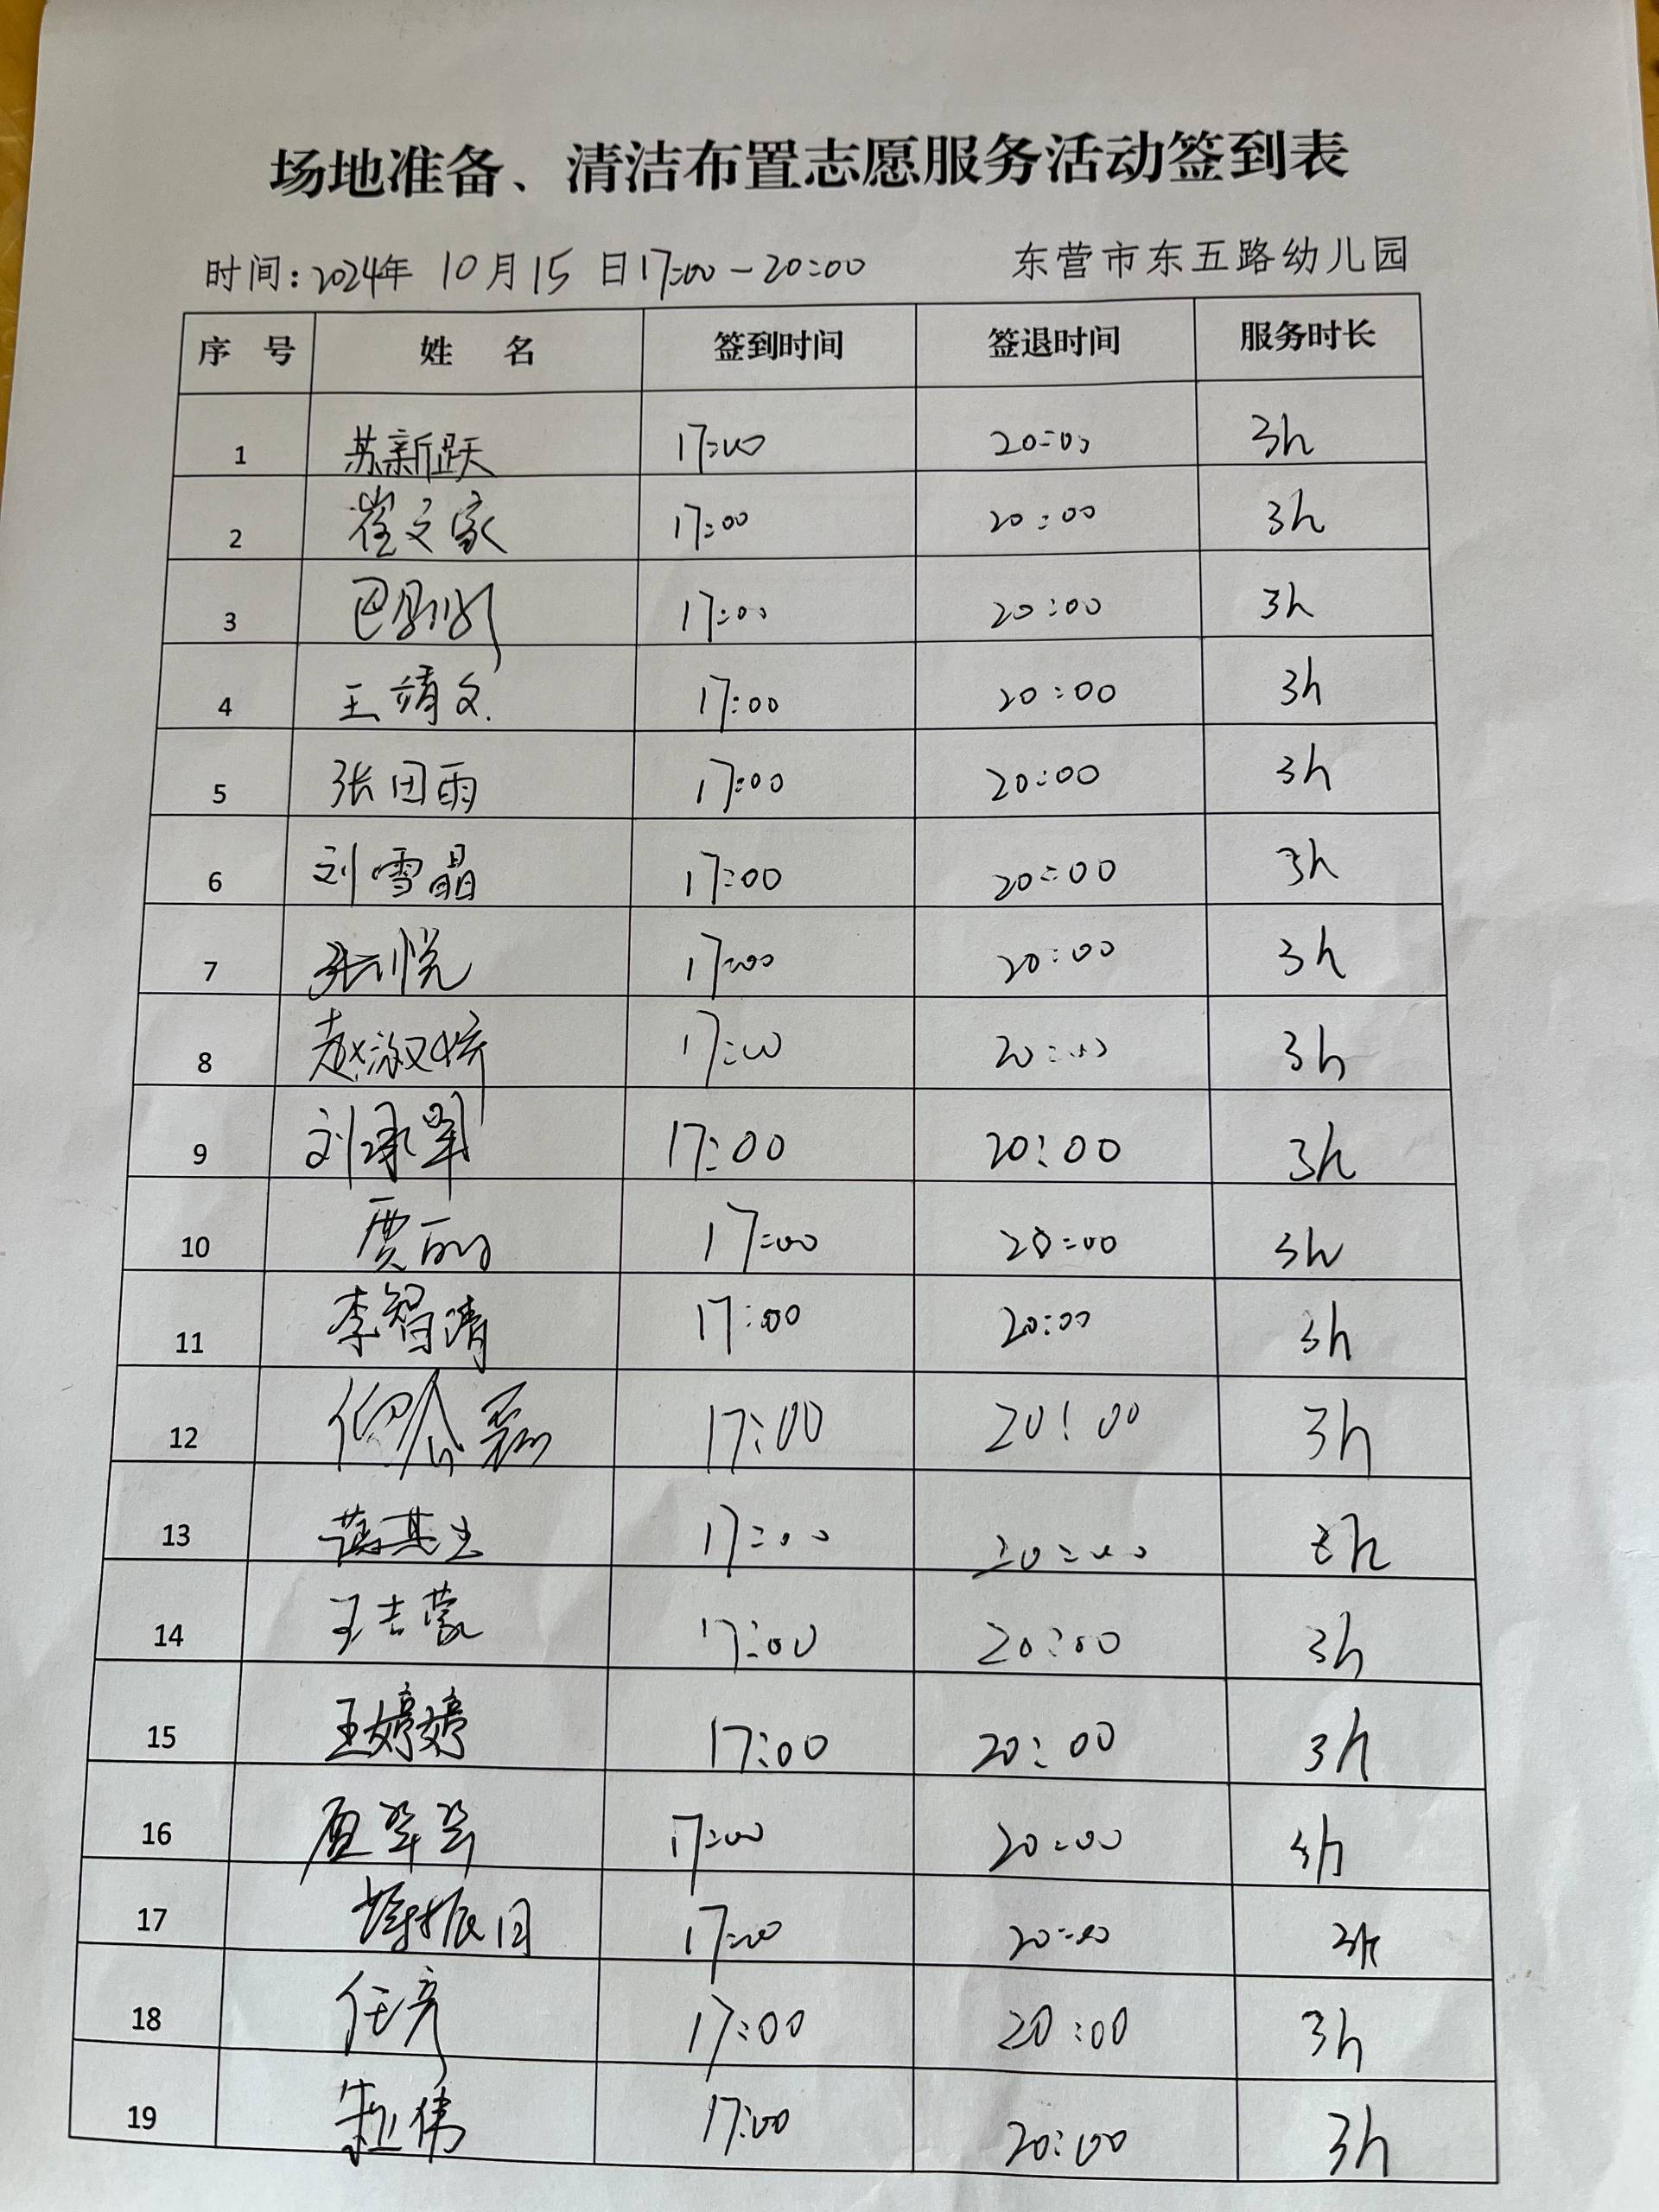 场地准备、清洁布置志愿服务活动签到表
时间:2024年 10月15 日17:00-20:00 东营市东五路幼儿园
序 号 姓 名 签到时间 签退时间 服务时长
1 苏新跃 17:00 20:00 3h
2 崔文家 17:00 20:00 3h
3 17:00 20:00 3h
4 王靖文 17:00 20:00 3h
5 张田雨 17:00 20:00 3h
6 刘雪晶 17:00 20:00 3h
7 张悦 17:00 20:00 3h
8 赵淑婷 17:00 20:00 3h
9 17:00 20:00 3h
10 贾丽 17:00 20:00 3h
11 李智清 17:00 20:00 3h
12 17:00 20:00 3h
13 17:00 20:00 3h
14 王吉蒙 17:00 20:00 3h
15 王婷婷 17:00 20:00 3h
16 17:00 20:00 3h
17 17:00 20:00 3h
18 任彦 17:00 20:00 3h
19 17:00 20:00 3h